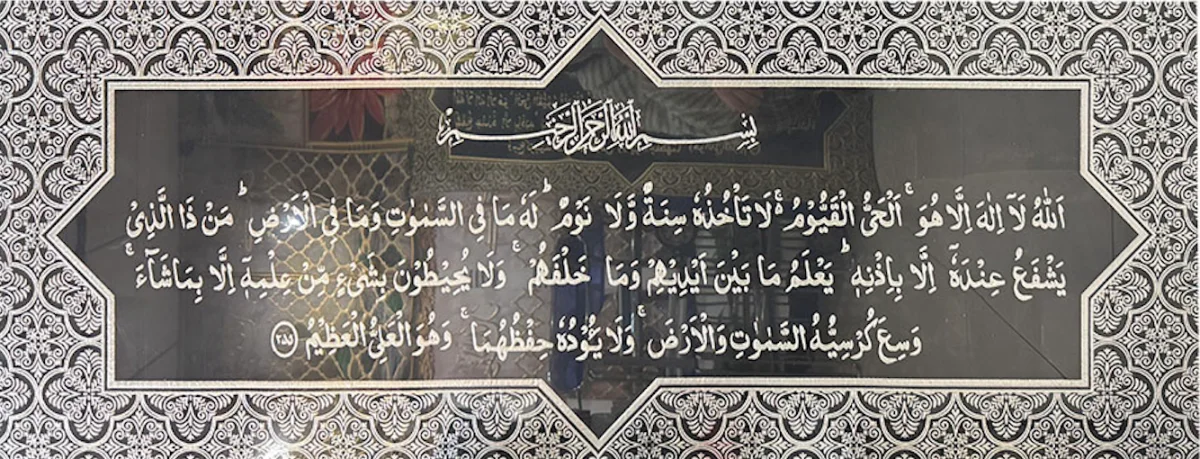 بِسْمِ اللّٰهِ الرَّحْمٰنِ الرَّحِيْمِ
اَللّٰهُ لَآ اِلٰهَ اِلَّا هُوَ ۚ اَلْحَیُّ الْقَیُّوْمُ ۚ۬ لَا تَاْخُذُهٗ سِنَةٌ وَّلَا نَوْمٌ ؕ لَهٗ مَا فِی السَّمٰوٰتِ وَمَا فِی الْاَرْضِ ؕ مَنْ ذَا الَّذِیْ
یَشْفَعُ عِنْدَهٗۤ اِلَّا بِاِذْنِهٖ ؕ یَعْلَمُ مَا بَیْنَ اَیْدِیْهِمْ وَمَا خَلْفَهُمْ ۚ وَلَا یُحِیْطُوْنَ بِشَیْءٍ مِّنْ عِلْمِهٖۤ اِلَّا بِمَا شَآءَ ۚ
وَسِعَ كُرْسِیُّهُ السَّمٰوٰتِ وَالْاَرْضَ ۚ وَلَا یَـُٔوْدُهٗ حِفْظُهُمَا ۚ وَهُوَ الْعَلِیُّ الْعَظِیْمُ ﴿۲۵۵﴾